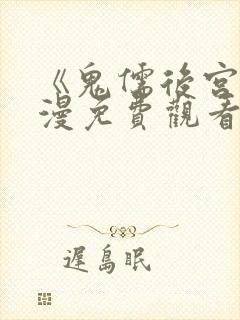 《鬼儒後宮
漫免費觀看
遲島眠